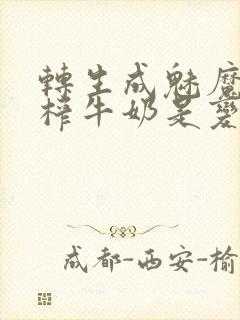 轉生成魅魔
榨牛奶是變
成都-西安-榆